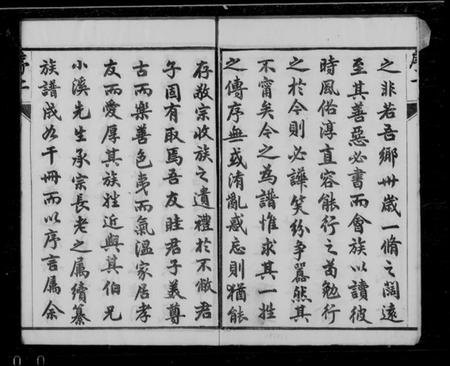 之非若吾鄉卅歲一脩之闊遠
至其善惡必書而會族以讀彼
時風俗淳直容能行之茍勉行
之於今則必譁笑紛爭囂然其
不甯矣今之為譜惟求其一姓
之傳序無或淆亂惑忘則猶能
存敬宗收族之遺禮於不俶君
子固有取焉吾友眭君子義尊
古而樂善色夷而氣溫家居孝
友而愛厚其族姓近與其伯兄
小溪先生承宗長老之屬續纂
族譜成如干冊而以序言屬余
序二